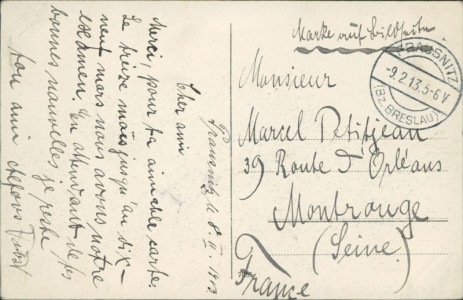 Prausnitz le 8 II 1913
Cher ami
Merci, pour ta aimable carte.
Le treize mars jusqu'au dix-
neuf mars nous avons notre
examen. En attendant de tes
bonnes nouvelles je reste
ton ami
Marke auf Bildseite.
PRAUSNITZ
-9.2.13.5-6V
(BZ. BRESLAU)
Monsieur
Marcel Petitjean
39 Route d'Orléans
Montrouge
(Seine)
France